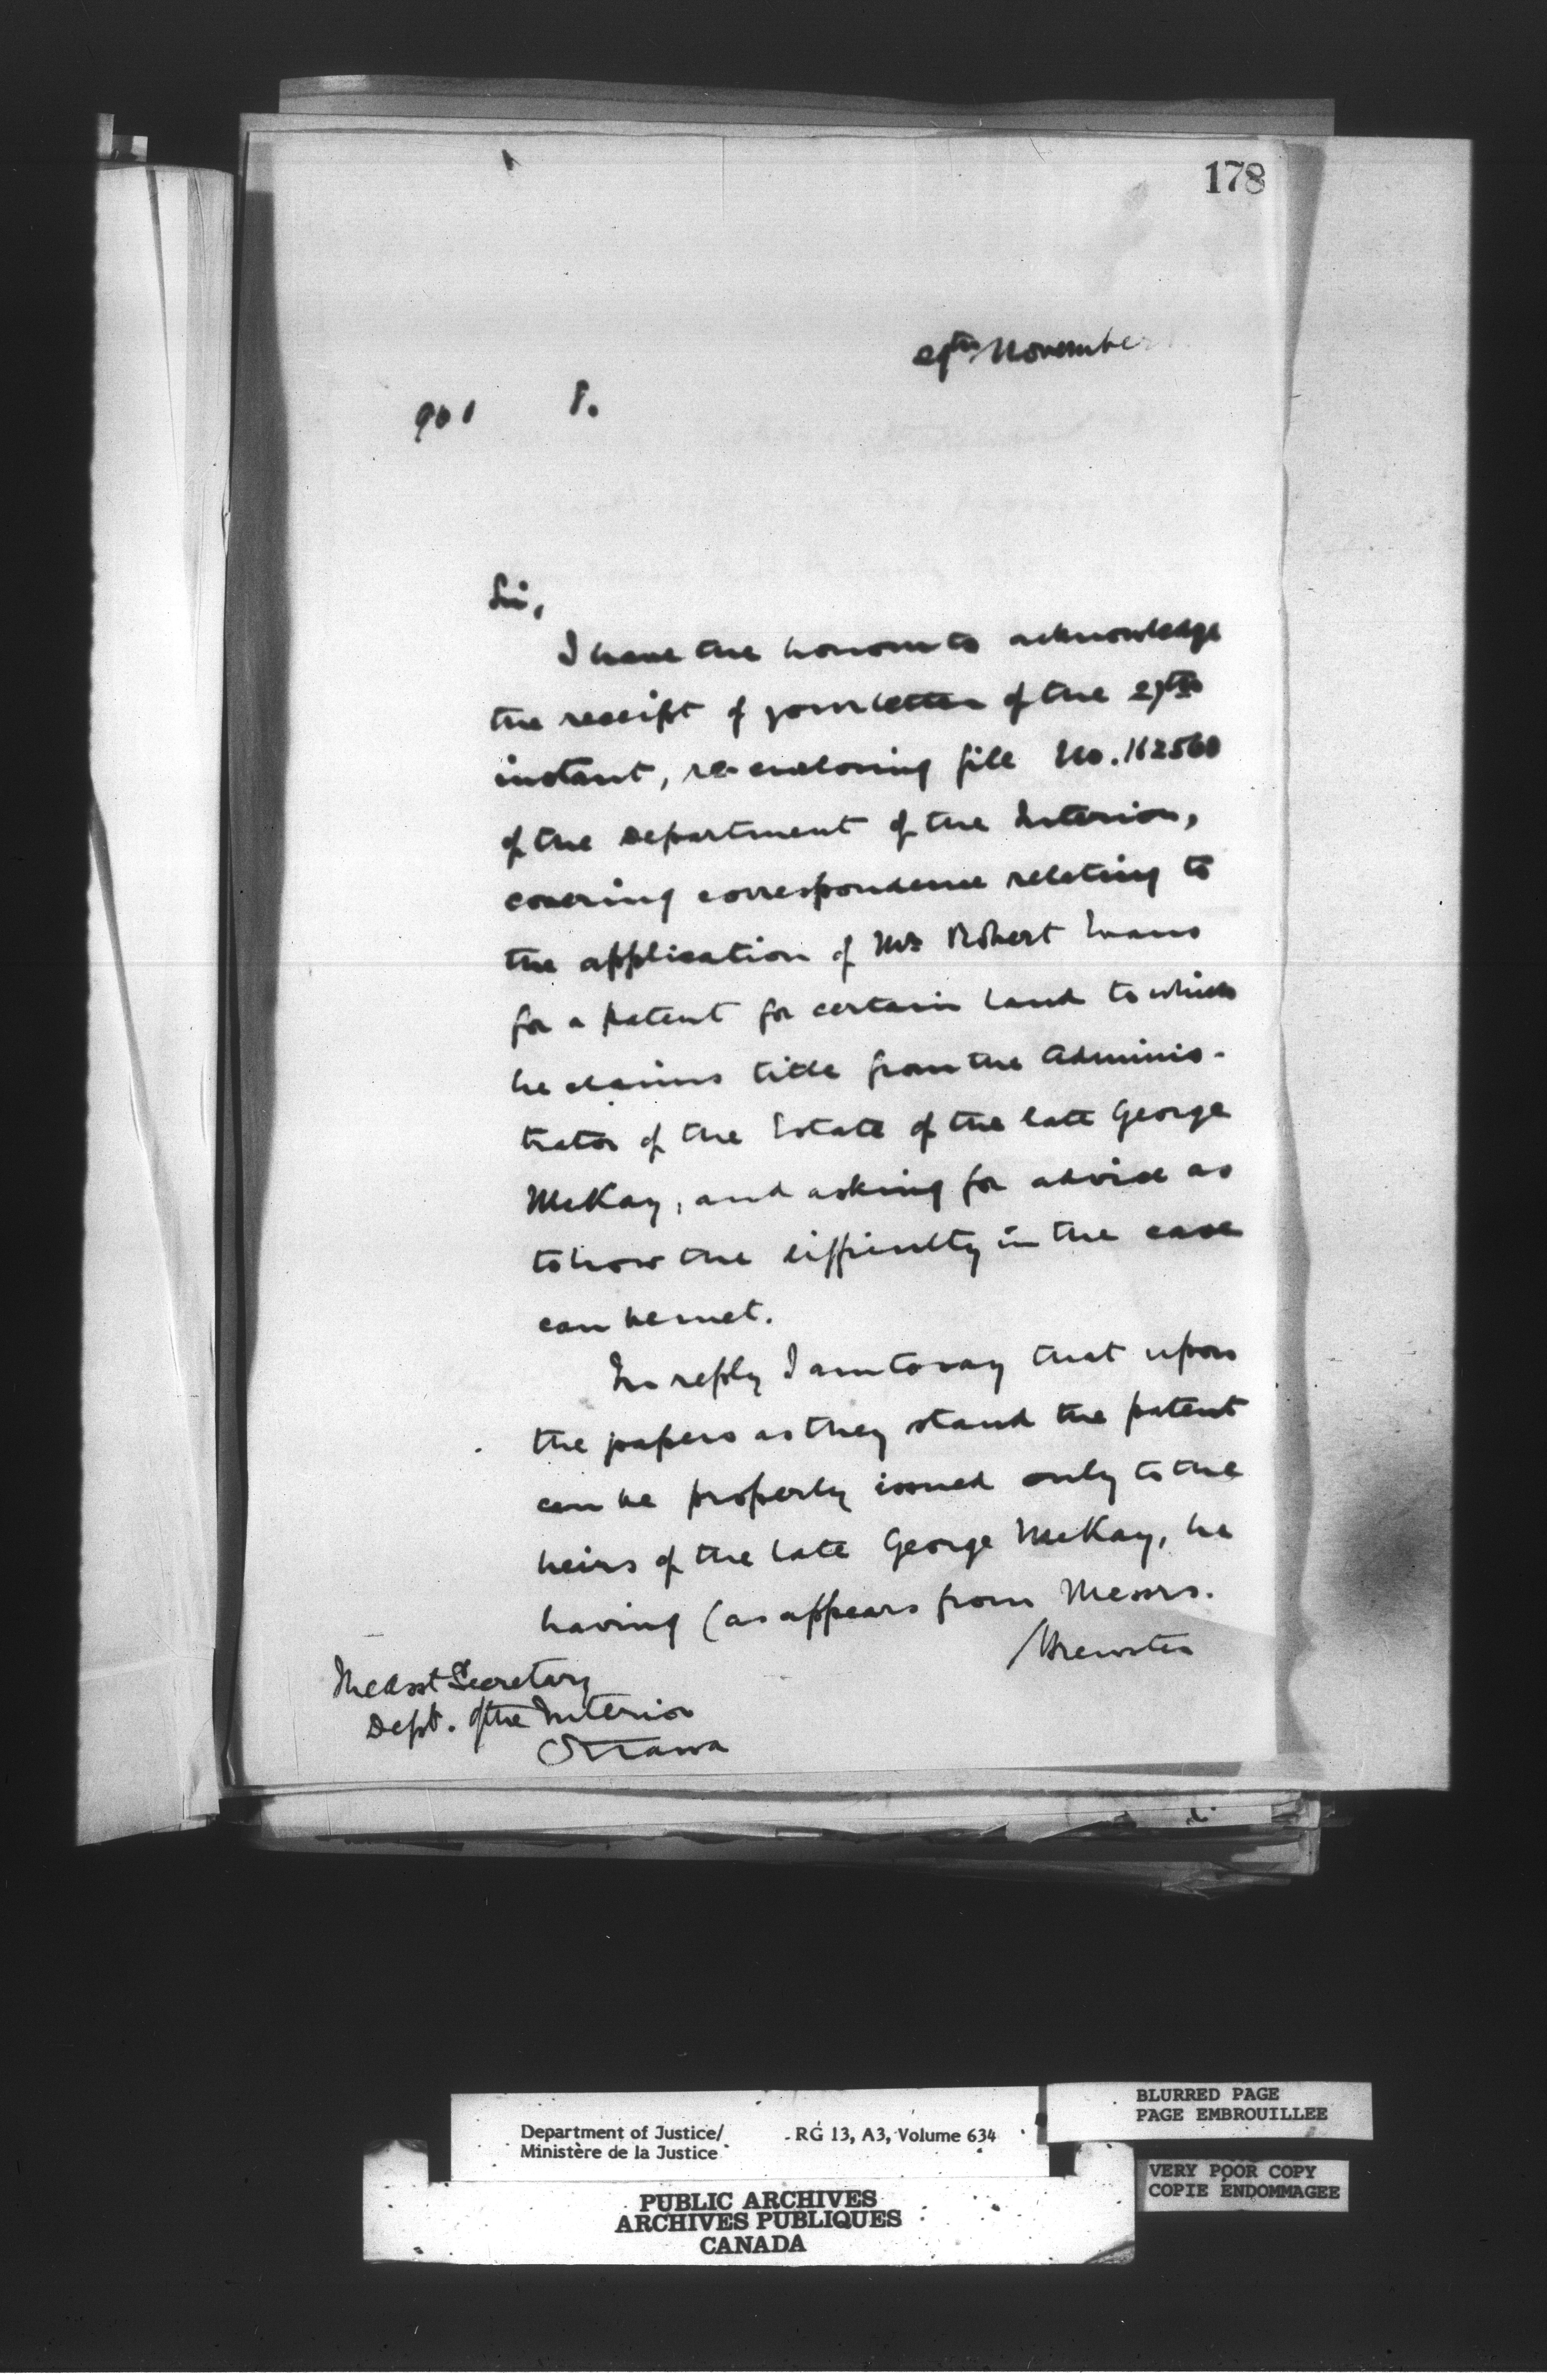 178
29th November
961 8.
Sir,
I have the honour to acknowledge
the receipt of your letter of the 27th
instant, re-enclosing file No. 162560
of the Department of the Interior,
covering correspondence relating to
the application of Mr Robert Evans
for a patent for certain land to which
he claims title from the Adminis-
trator of the Estate of the late George
McKay, and asking for advice as
to how the difficulty in the case
can be met.
In reply I am to say that upon
the papers as they stand the patent
can be properly issued only to the
heirs of the late George McKay, he
having (as appears from Messrs.
/Brewster
The Asst Secretary
Dept. of the Interior
Ottawa
BLURRED PAGE
PAGE EMBROUILLEE
Department of Justice/ RG 13, A3, Volume 634
Ministère de la Justice
VERY POOR COPY
COPIE ENDOMMAGEE
PUBLIC ARCHIVES
ARCHIVES PUBLIQUES
CANADA